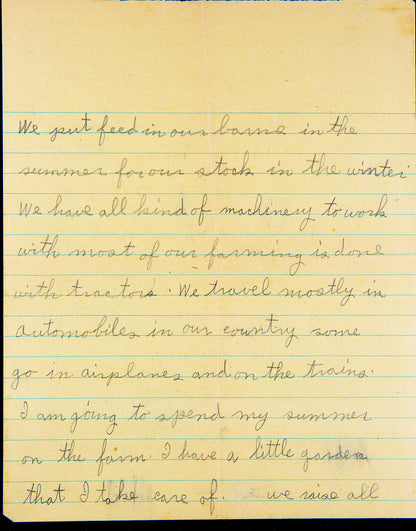 We put feed in our barns in the
summer for our stock in the winter
We have all kind of machinery to work
with most of our farming is done
with tractors. We travel mostly in
automobiles in our country some
go in airplanes and on the trains.
I am going to spend my summer
on the farm. I have a little garden
that I take care of. we raise all